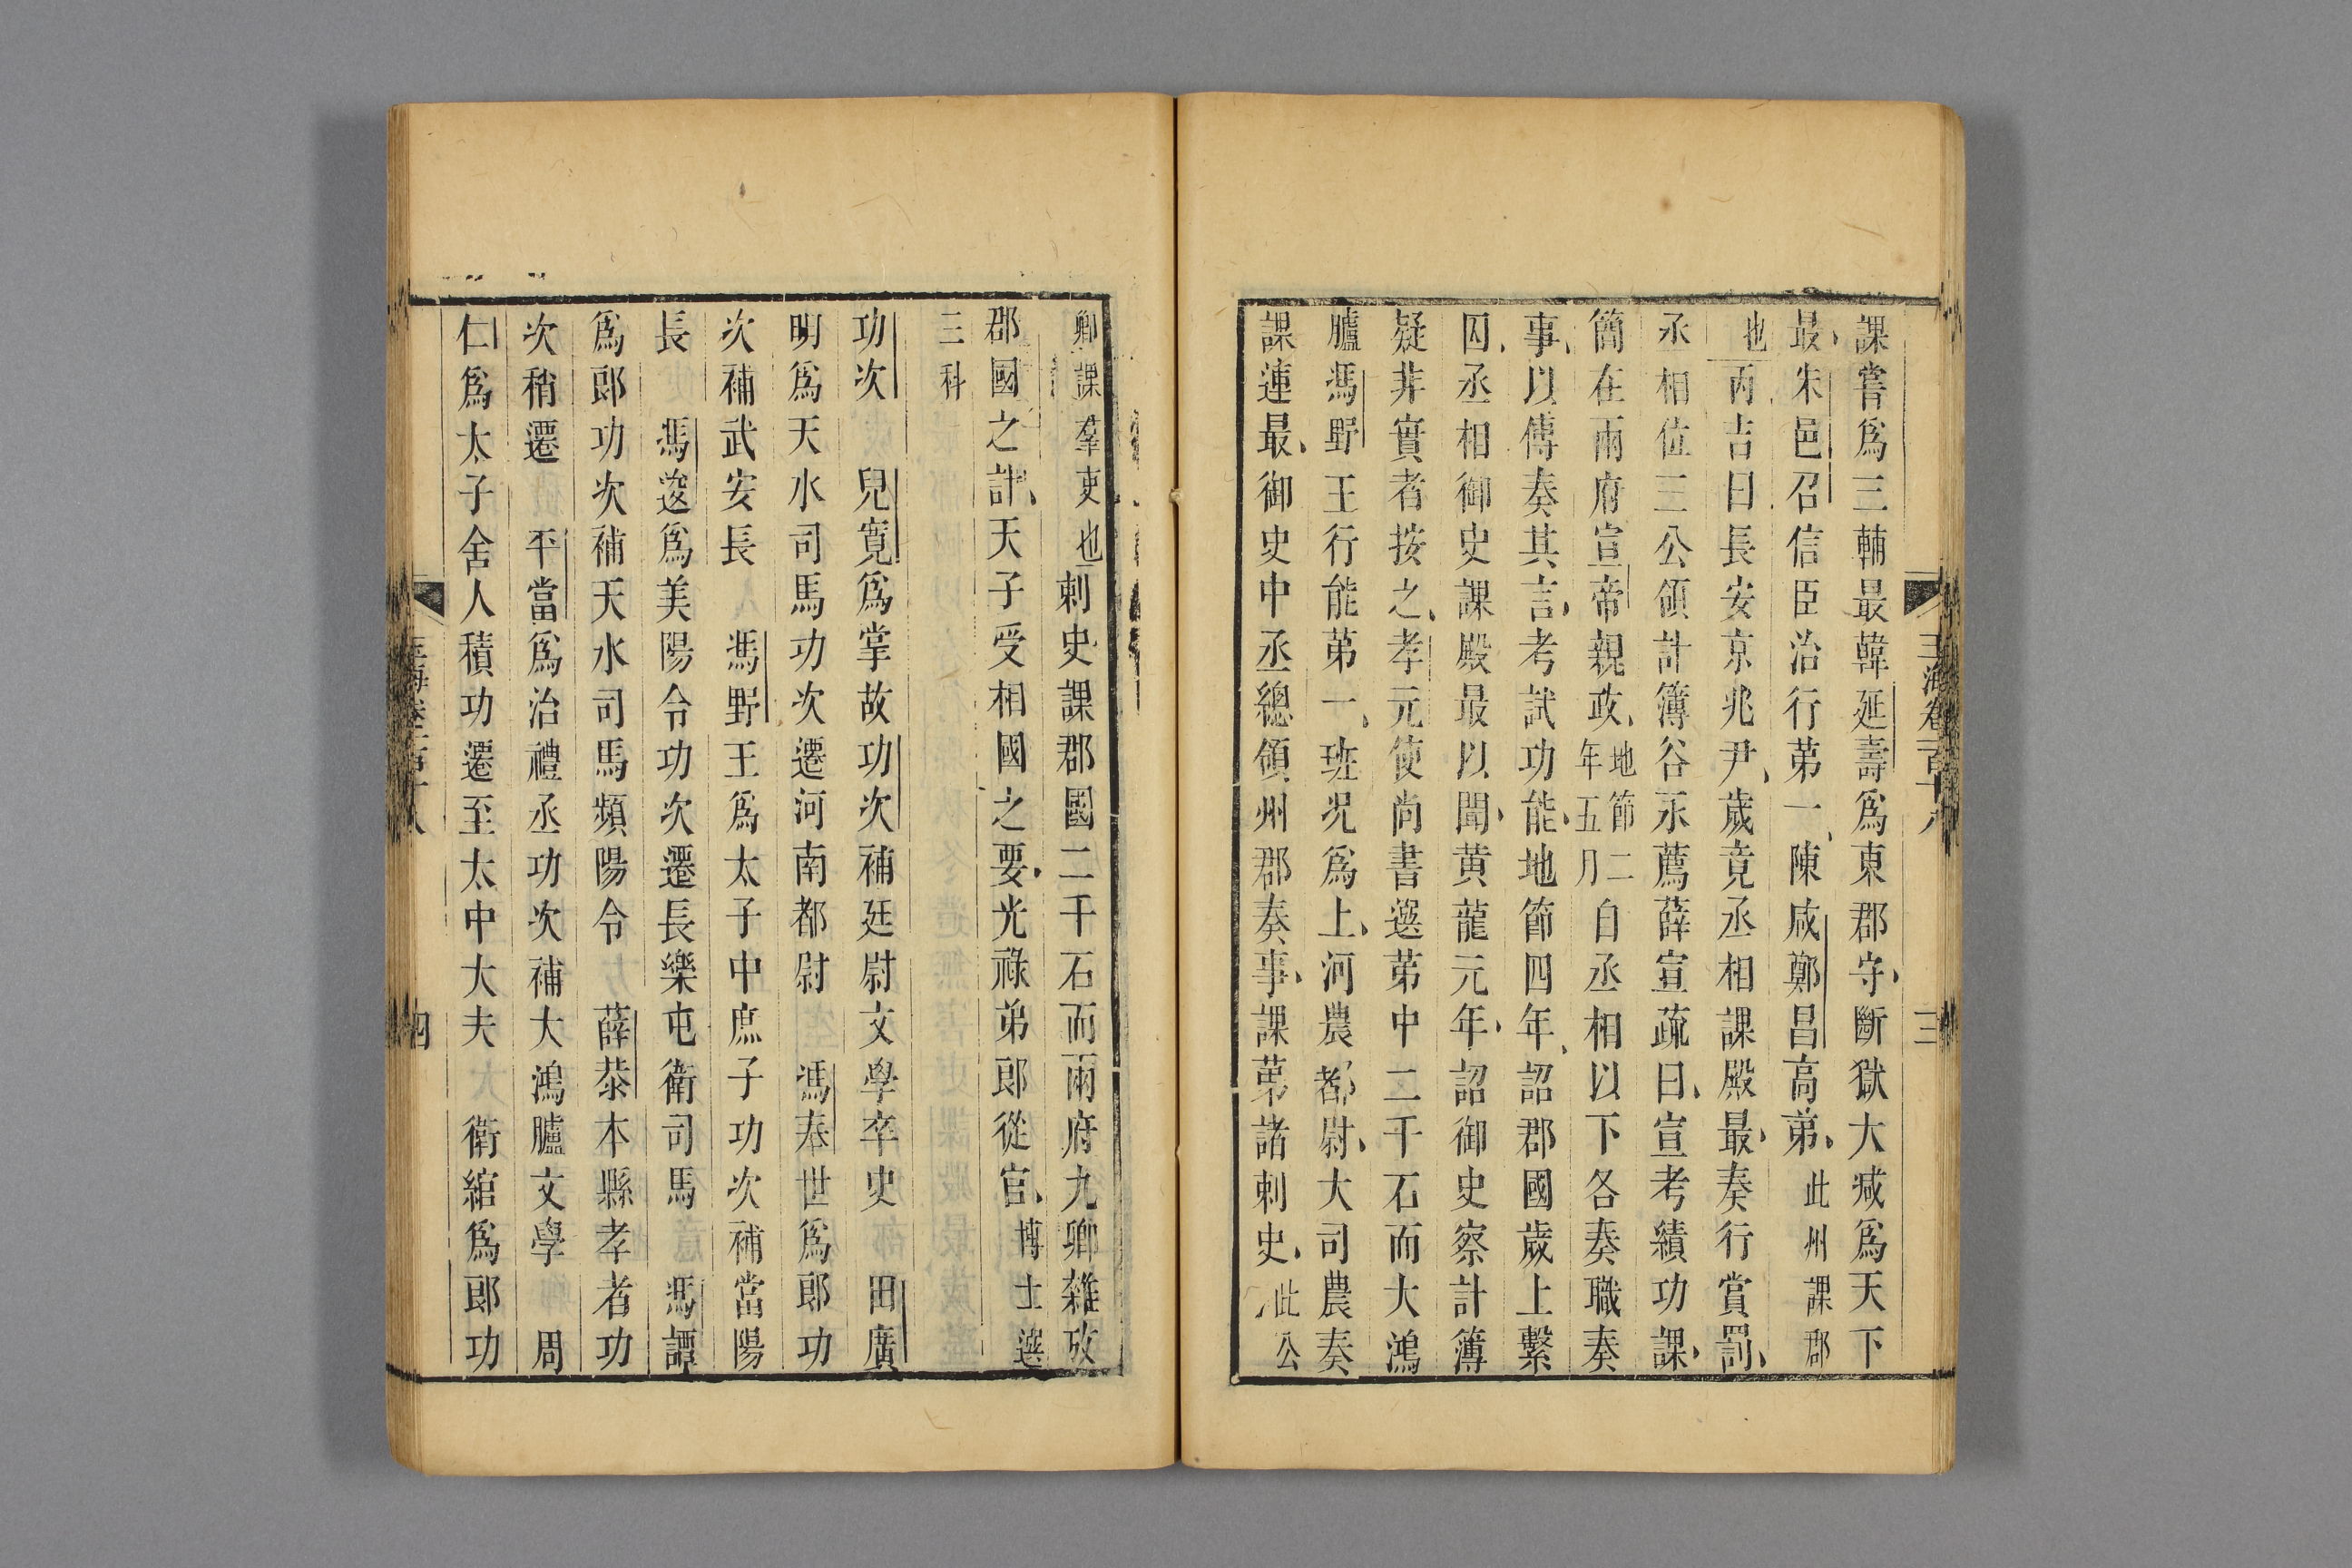 玉海卷百十八
三
課嘗爲三輔最韓延壽爲東郡守斷獄大減爲天下
最朱邑召信臣治行第一陳咸鄭昌高第此州課郡
也丙吉曰長安京兆尹歲竟丞相課殿最奏行賞罰
丞相位三公領計簿谷永薦薛宣疏曰宣考績功課
簡在兩府宣帝親政地節二年五月自丞相以下各奏職奏
事以傅奏其言考試功能地節四年詔郡國歲上繫
囚丞相御史課殿最以聞黄龍元年詔御史察計簿
疑非實者按之孝元使尚書選第中二千石而大鴻
臚馮野王行能第一班况爲上河農都尉大司農奏
課連最御史中丞總領州郡奏事課第諸刺史此公
卿課羣吏也刺史課郡國二千石而兩府九卿雜攷
郡國之計天子受相國之要光祿第郎從官博士選
三科
功次　兒寛爲掌故功次補廷尉文學卒史　田廣
明爲天水司馬功次遷河南都尉　馮奉世爲郎功
次補武安長　馮野王爲太子中庶子功次補當陽
長　馮逡爲美陽令功次遷長樂屯衛司馬　馮譚
爲郎功次補天水司馬頻陽令　薛恭本縣孝者功
次稍遷　平當爲治禮丞功次補大鴻臚文學　周
仁爲太子舍人積功遷至太中大夫　衛綰爲郎功
四